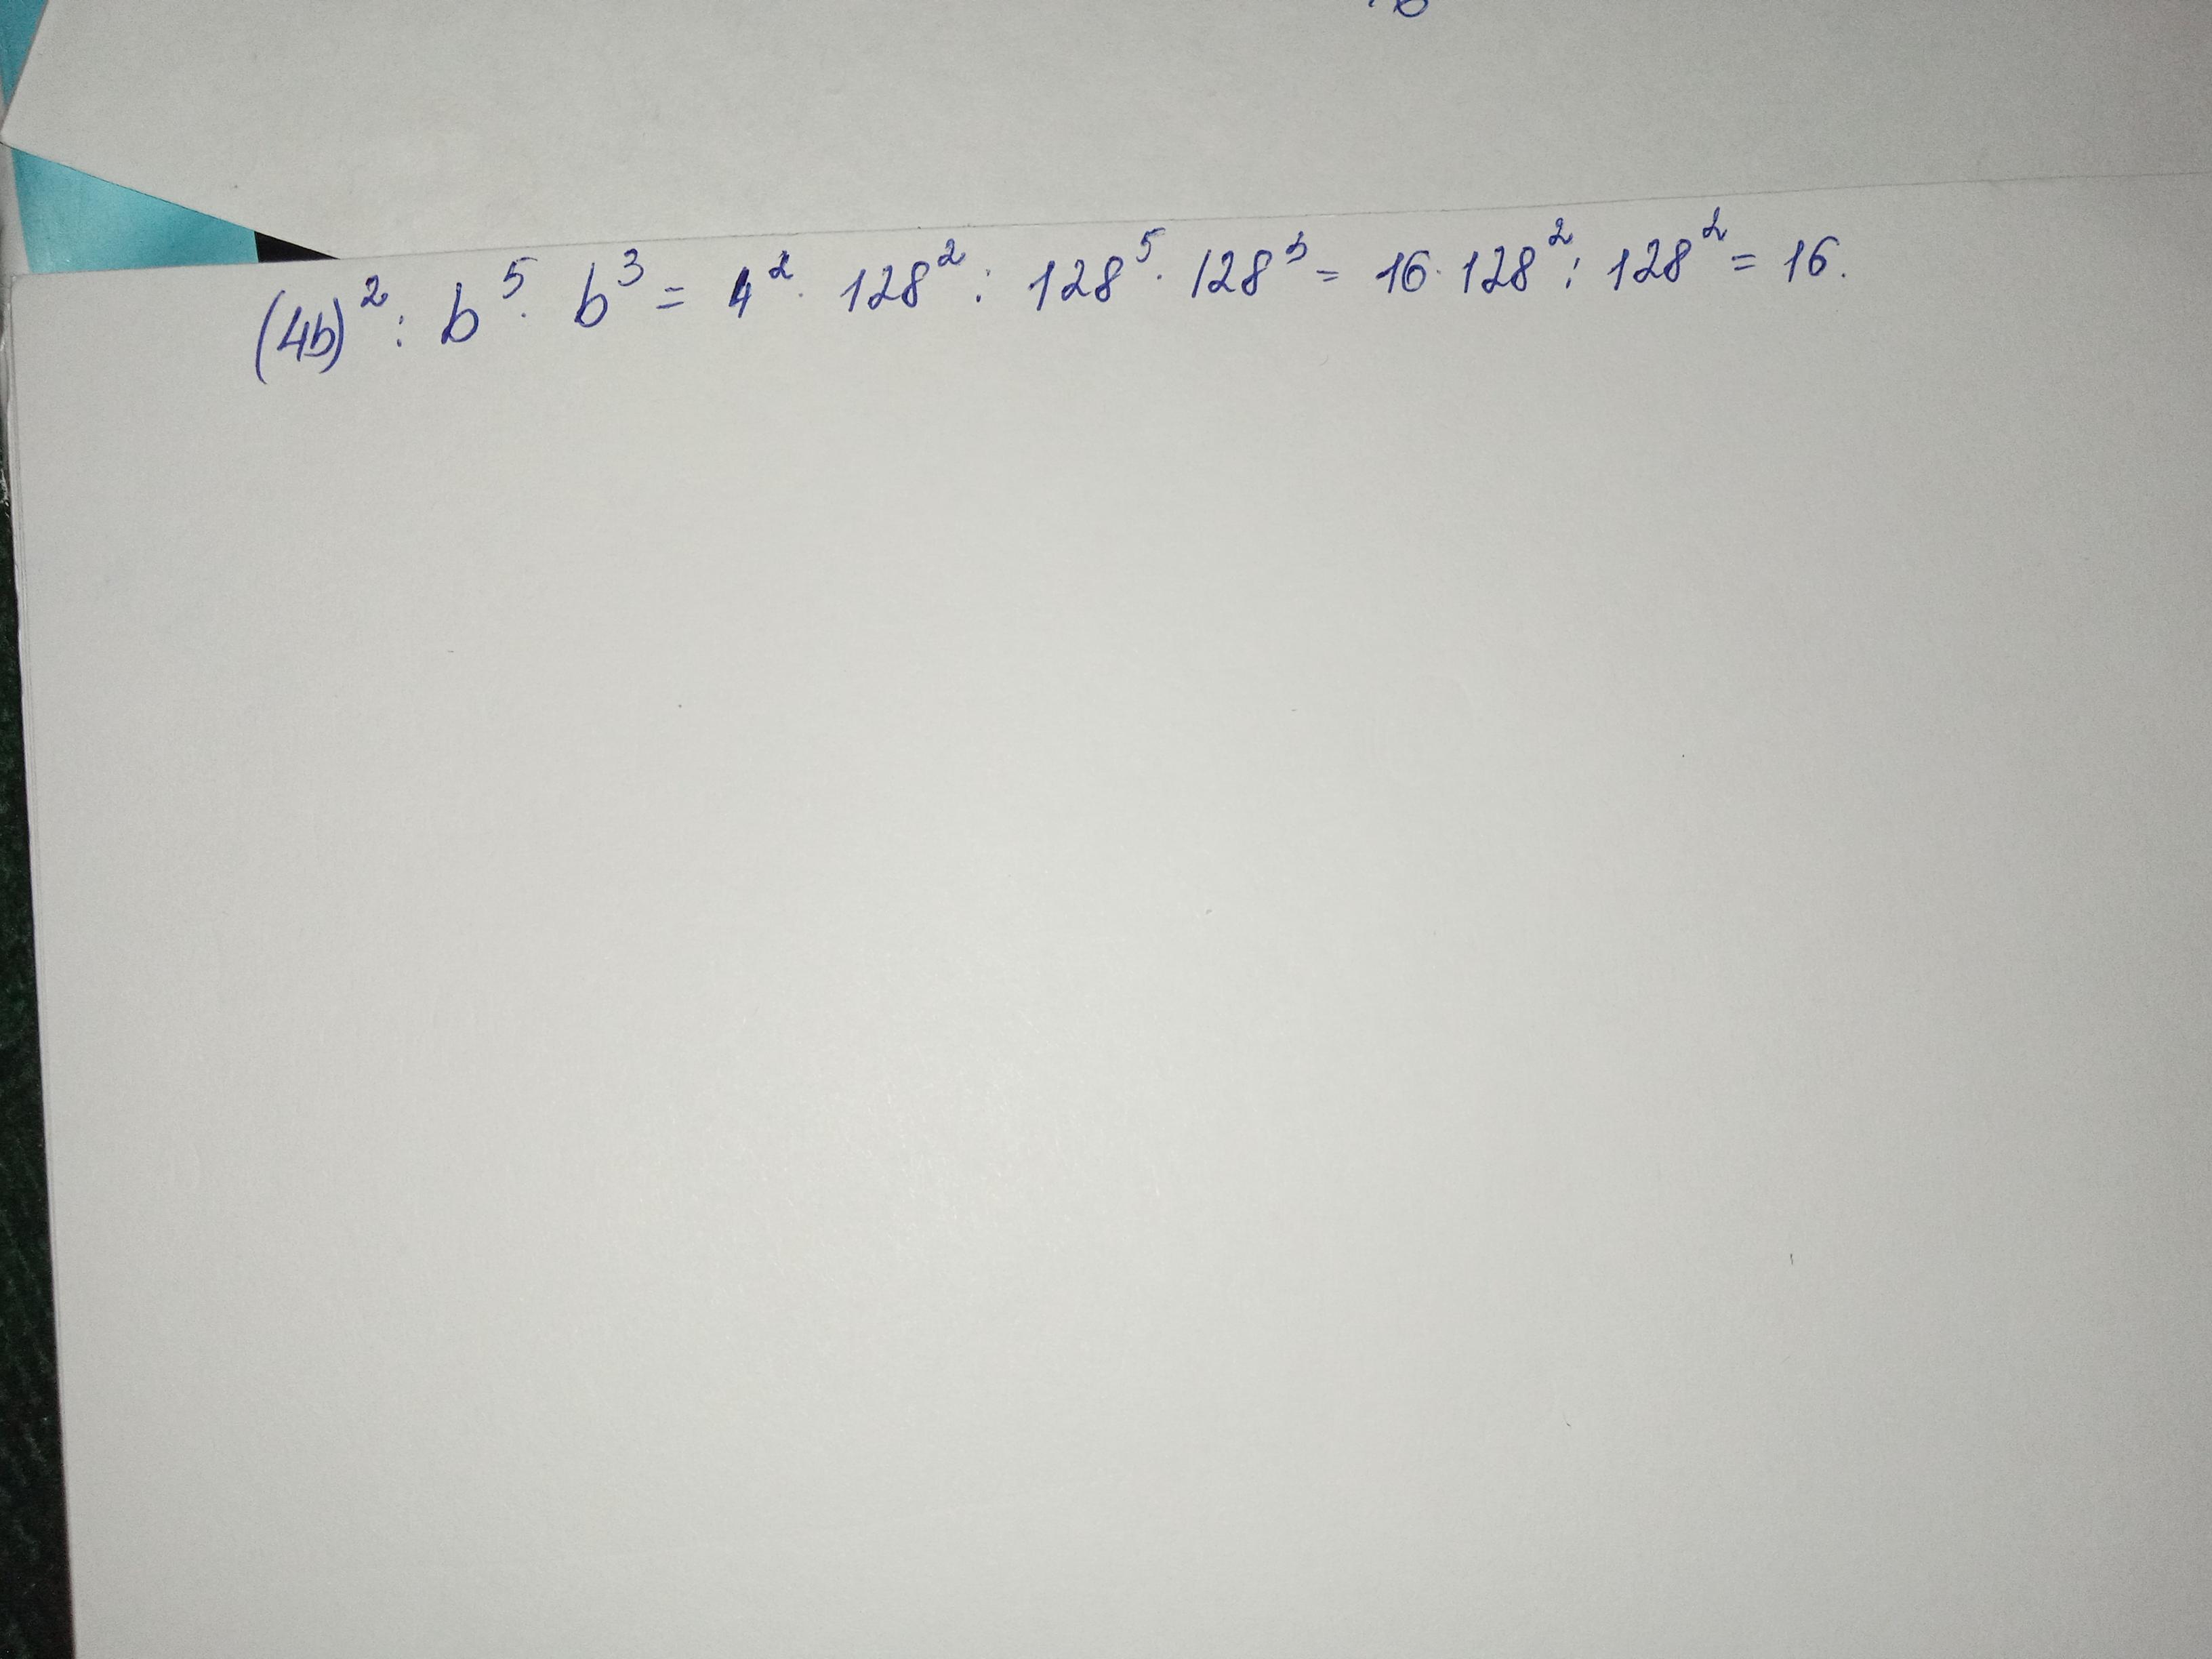 (4b)² : b⁵ · b³ = 4² · 128² : 128⁵ · 128³ = 16 · 128² : 128² = 16.